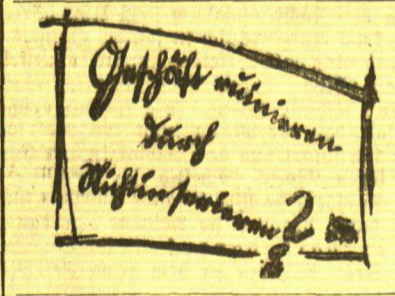 Geschäft ruinieren
durch
Nichtinserieren?